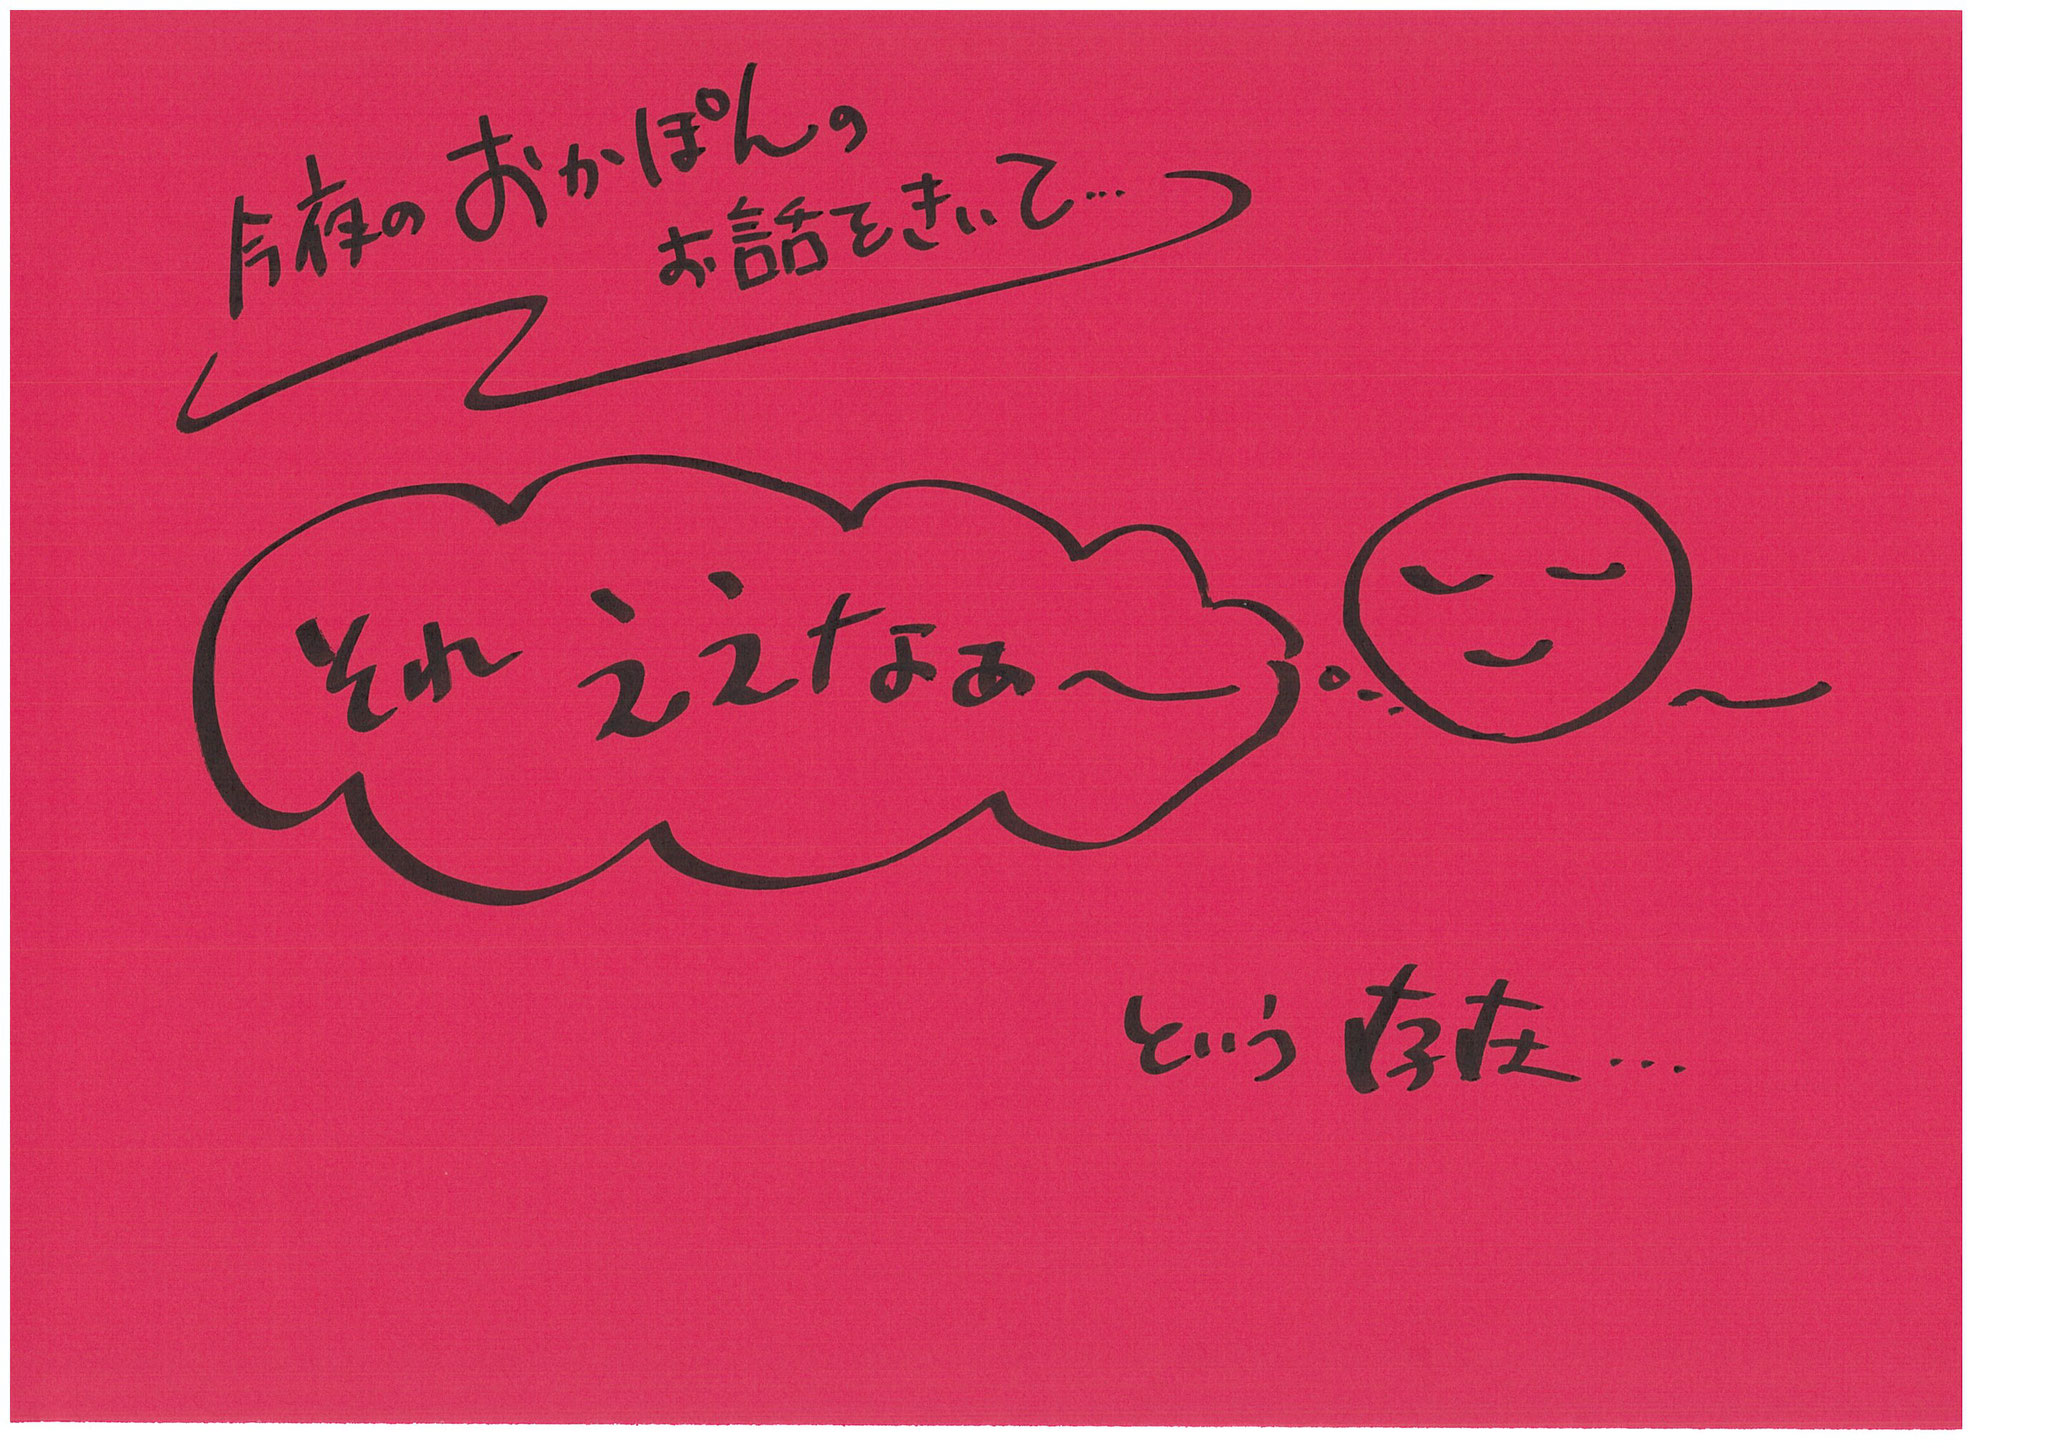 今夜のおかぽんの
お話をきいて…
それ ええなぁ〜
という存在…